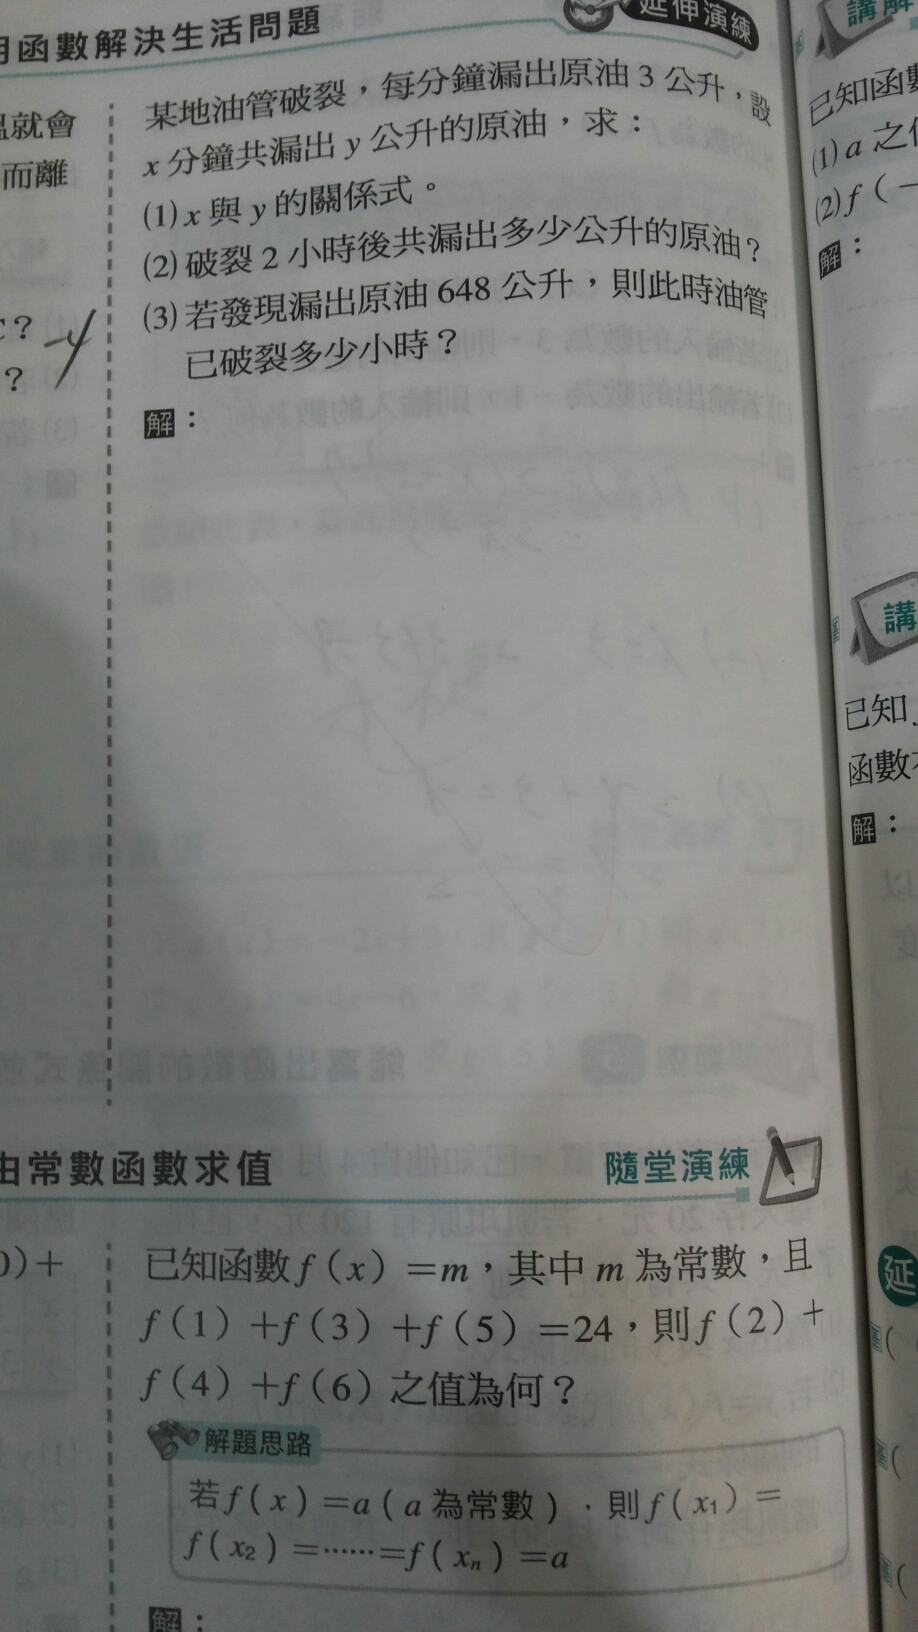 用函數解決生活問題
延伸演練
就會
而離
？
？
某地油管破裂，每分鐘漏出原油 3 公升，設
x 分鐘共漏出 y 公升的原油，求：
(1) x 與 y 的關係式。
(2) 破裂 2 小時後共漏出多少公升的原油？
(3) 若發現漏出原油 648 公升，則此時油管
已破裂多少小時？
解：
由常數函數求值
隨堂演練
0)＋
已知函數 f（x）＝m，其中 m 為常數，且
f（1）＋f（3）＋f（5）＝24，則 f（2）＋
f（4）＋f（6）之值為何？
解題思路
若 f（x）＝a（a 為常數），則 f（x₁）＝
f（x₂）＝……＝f（xₙ）＝a
解：
講解
已知函數
(1) a 之
(2) f（－
解：
講
已知
函數
解：
延